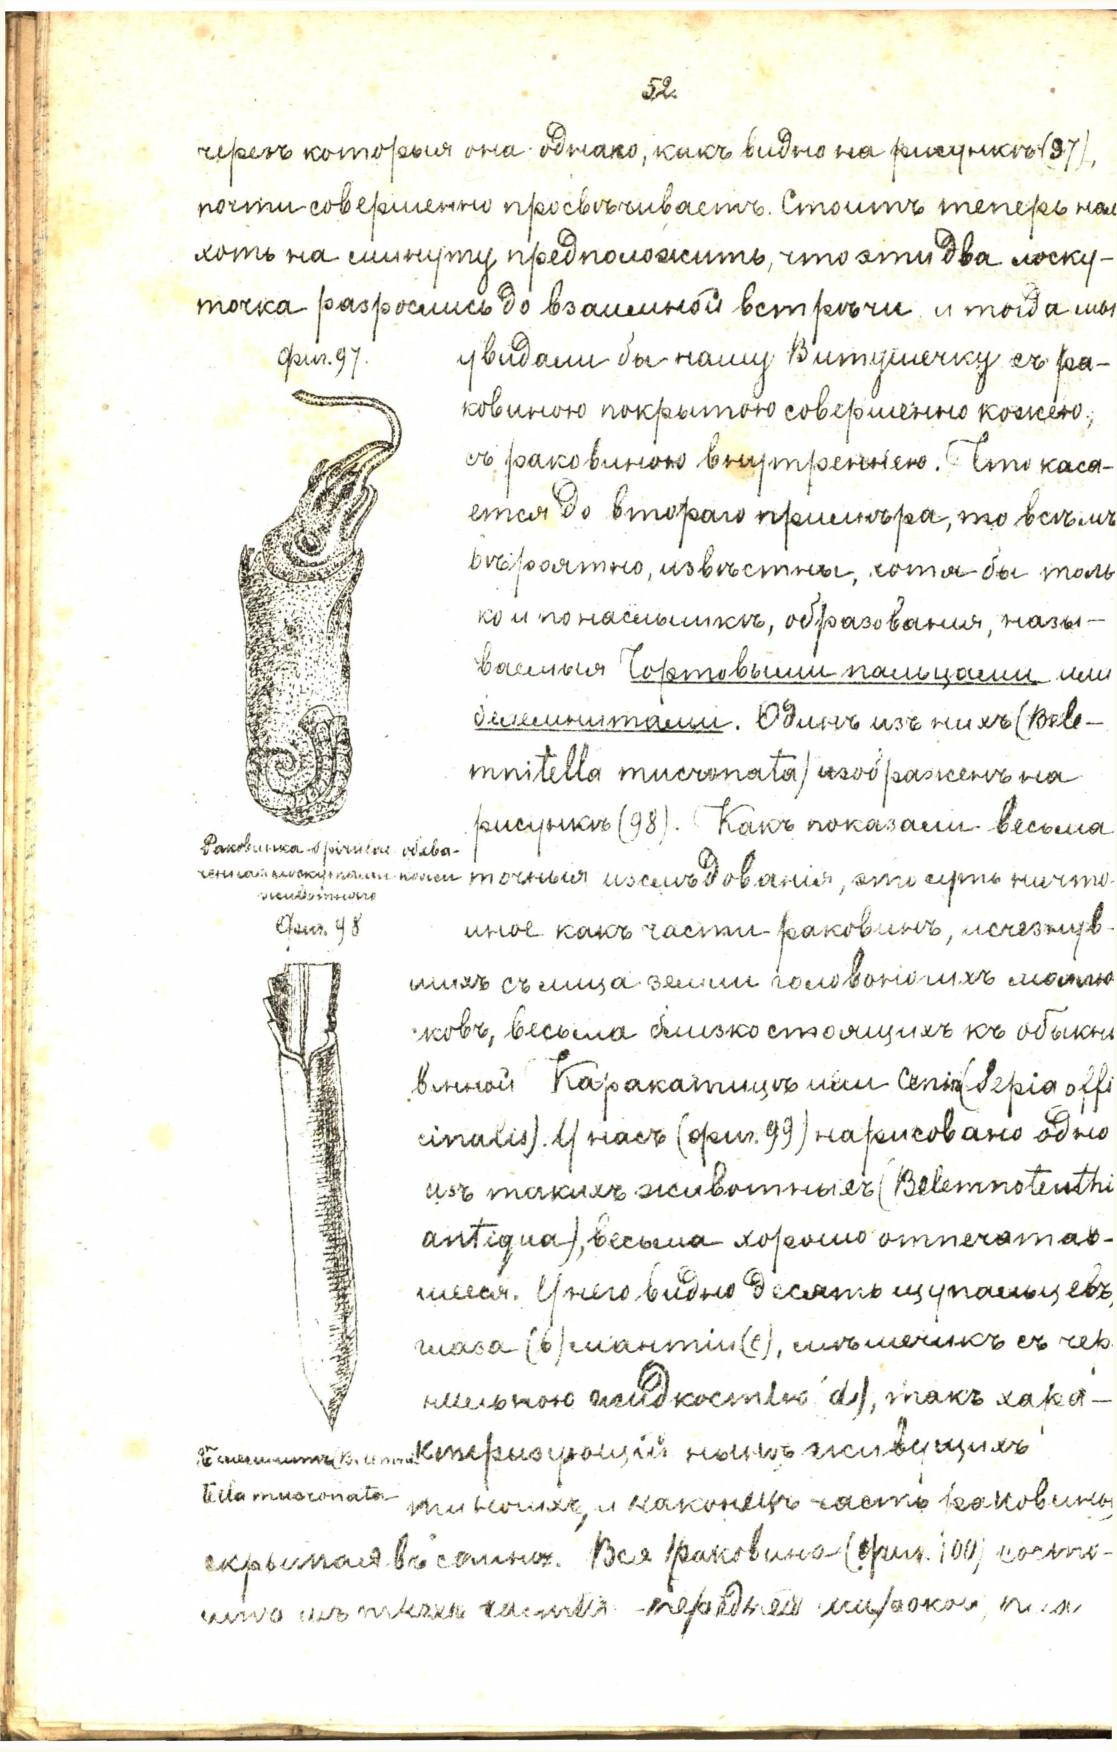 52.
черезъ которыя она однако, какъ видно на рисункѣ (97),
почти совершенно просвѣчиваетъ. Стоитъ теперь нам
хоть на минуту предположить, что эти два лоску-
точка разрослись до взаимной встрѣчи и тогда мы
увидали бы нашу Витушечку съ ра-
ковиною покрытою совершенно кожею,
съ раковиною внутреннею. Что каса-
ется до втораго примѣра, то всѣмъ
вѣроятно, извѣстны, хотя бы толь
ко и по наслышкѣ, образования, назы-
ваемыя Чортовыми пальцами или
белемнитами. Одинъ изъ нихъ (Bele-
mnitella mucronata) изображенъ на
рисункѣ (98). Какъ показали весьма
точныя изслѣдованія, это суть ничто
иное какъ части раковинъ, исчезнув-
шихъ съ лица земли головоногихъ моллю
сковъ, весьма близко стоящихъ къ обыкн
венной Каракатицѣ или Сепіи (Sepia offi
cinalis). У насъ (фиг. 99) нарисовано одно
изъ такихъ животныхъ (Belemnoteuthi
antiqua), весьма хорошо отпечатав-
шееся. У него видно десять щупальцевъ,
глаза (b) мантіи (c), мѣшечикъ съ чер
нильною жидкостью d), такъ хара-
ктеризующій нынѣ живущихъ
и наконецъ часть раковины
скрытая въ спинѣ. Вся раковина (фиг. 100) состо-
итъ изъ трехъ частей передней широкой,
Фиг. 97.
Раковинка Spirulae обхва-
ченная лоскутами кожи
животнаго
Фиг. 98
Белемнитъ (Belemni
tella mucronata